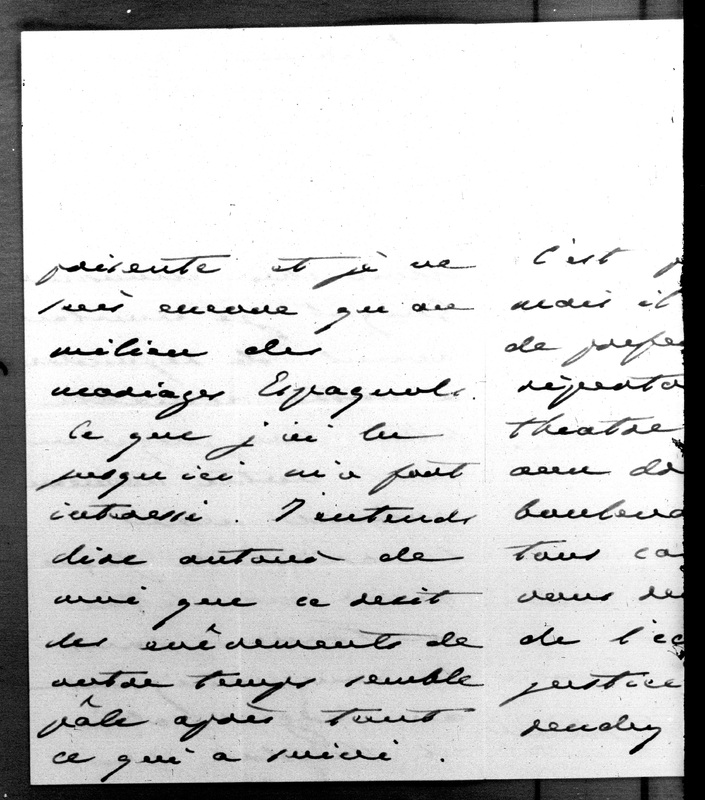 présente et je ne
suis encore qu'au
milieu des
mariages Espagnols.
Ce que j'ai lu
jusqu'ici m'a fort
intéressé. J'entends
dire autour de
moi que ce récit
des évênements de
notre temps semble
pâle après tout
ce qui a suivi.
C'est
mais il
de
théatre
tous
vous
de l'
justice
rendez